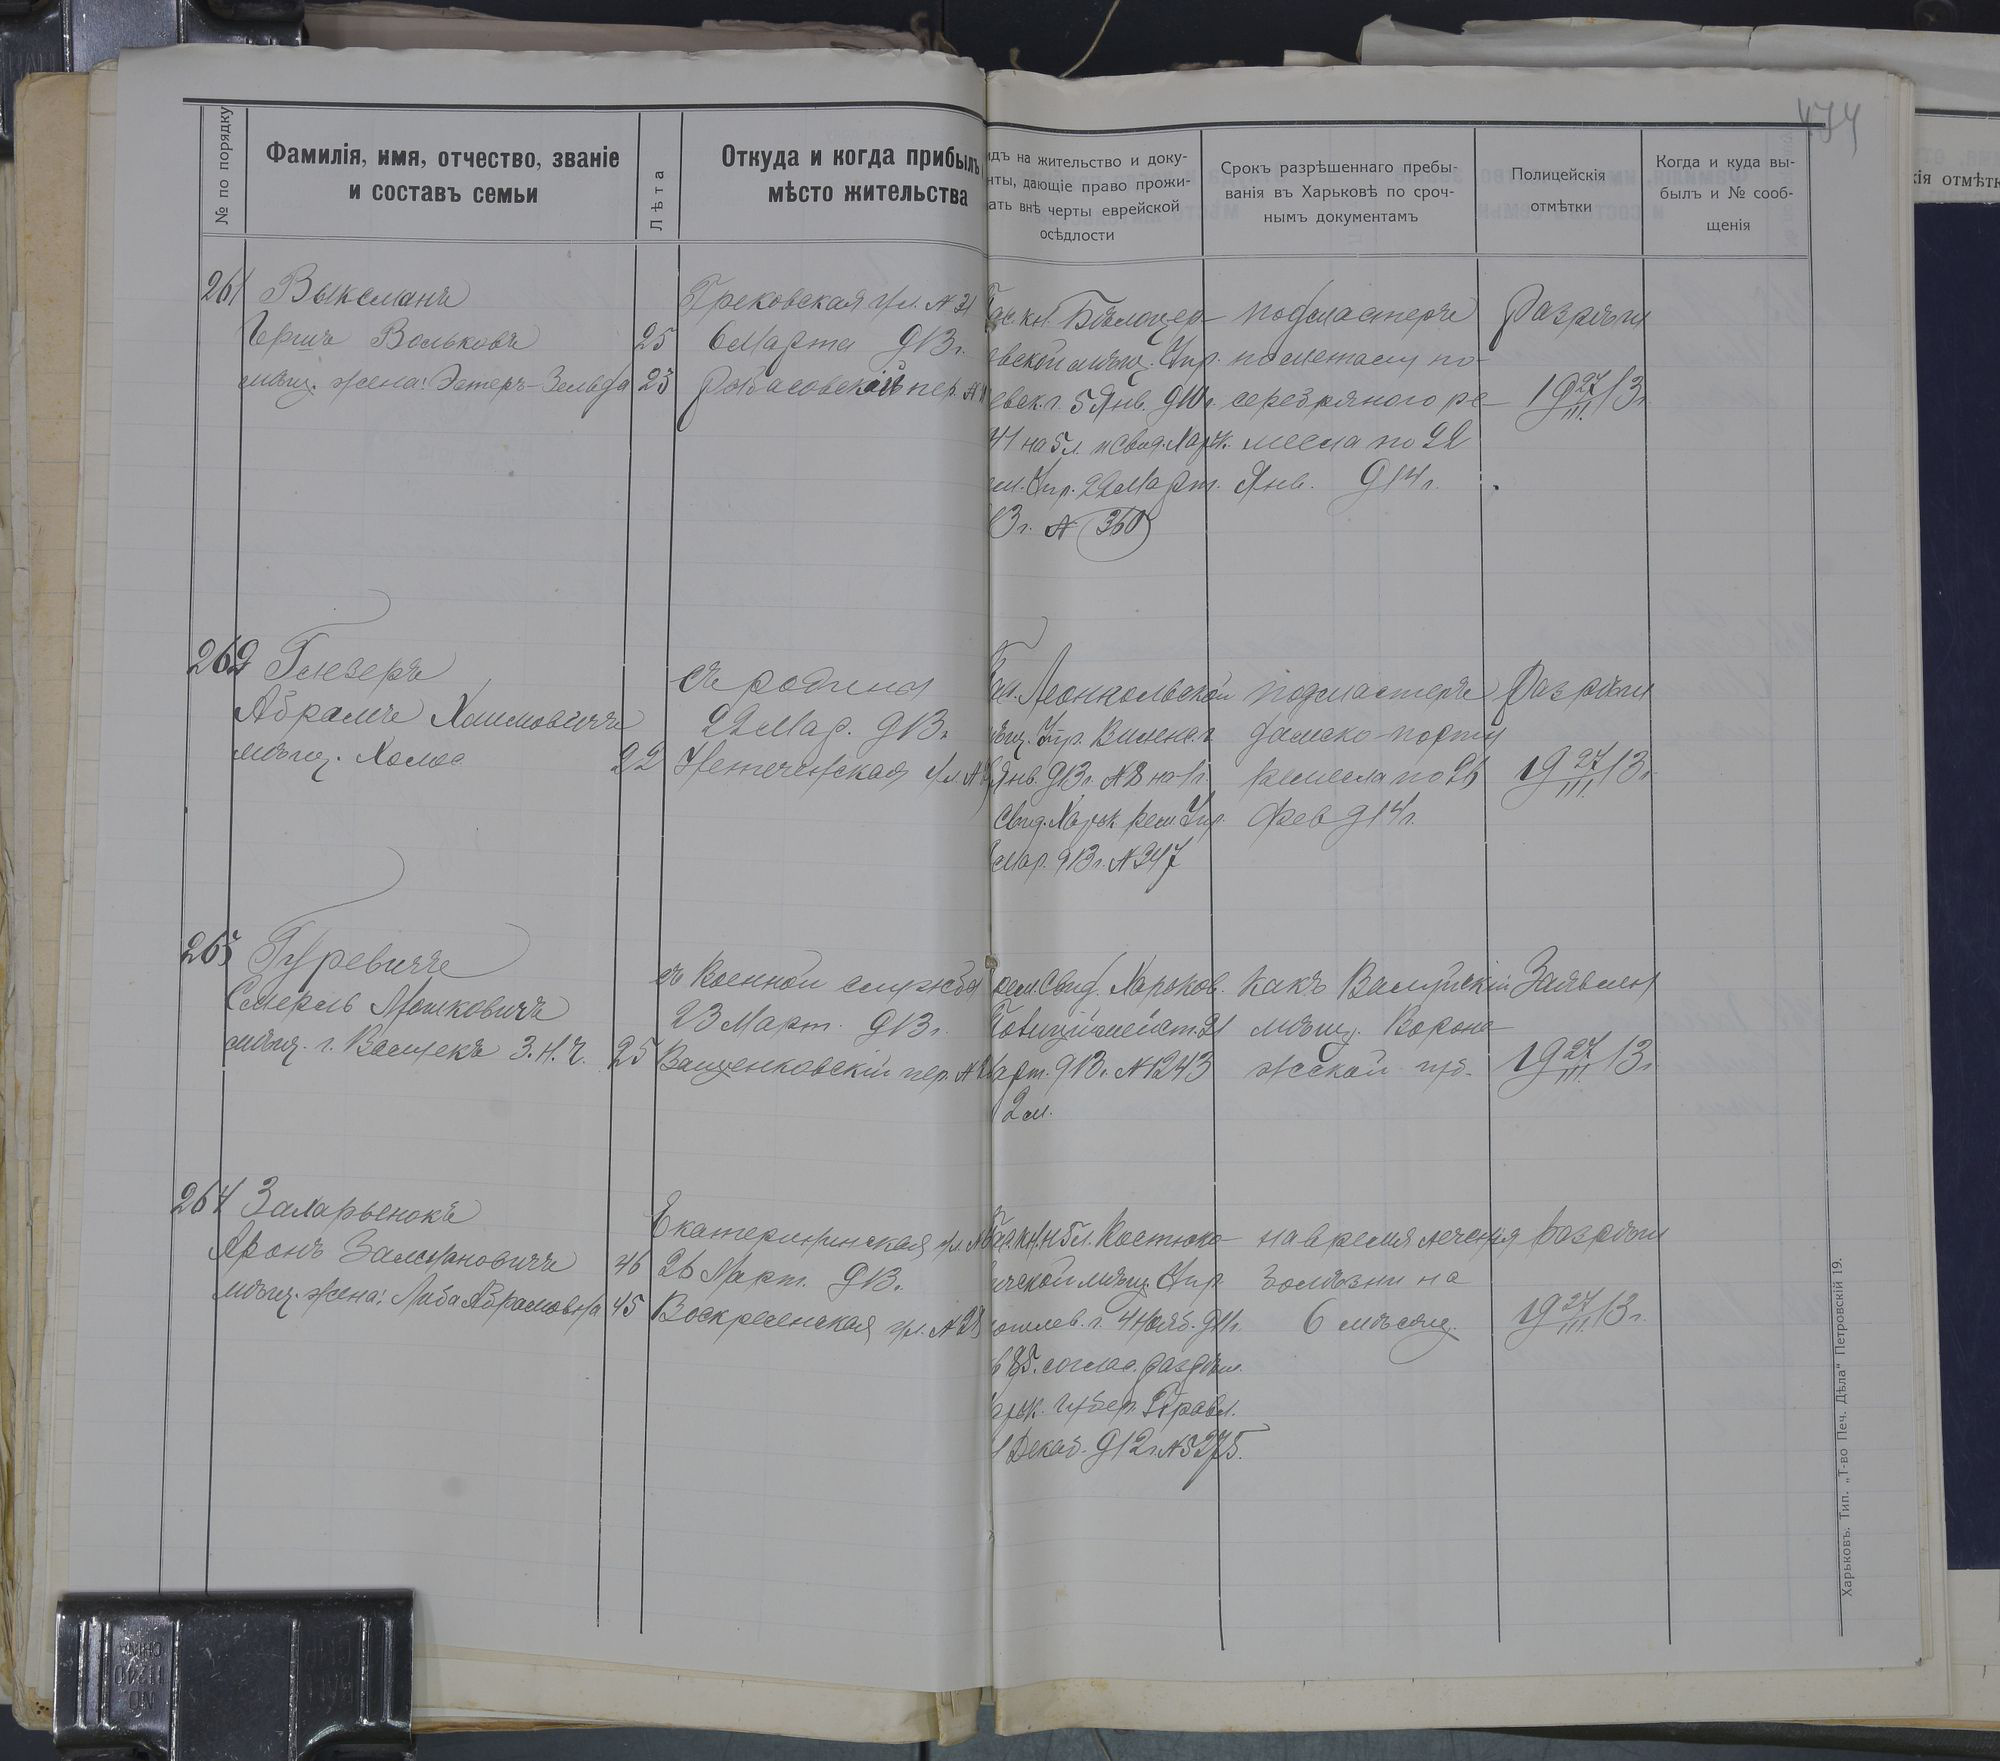 474
№ по порядку
Фамилія, имя, отчество, званіе
и составъ семьи
Лѣта
Откуда и когда прибылъ
мѣсто жительства
идъ на жительство и доку-
нты, дающіе право прожи-
ать внѣ черты еврейской
осѣдлости
Срокъ разрѣшеннаго пребы-
ванія въ Харьковѣ по сроч-
нымъ документамъ
Полицейскія
отмѣтки
Когда и куда вы-
былъ и № сооб-
щенія
кія отмѣтк
261 Выксманъ
Гершъ Вольковъ 25
мѣщ. жена: Эстеръ-Зельда 23
Грековская ул. №
6 Марта 913 г.
пер. №
Пас. кн. Бѣлоцер-
евской мѣщ. Упр.
евск. г. 5 Янв. 910 г.
41 на 5 л. и Свид. Харьк.
ем. Упр. 22 Март.
13 г. № 360
подмастерье
по
серебряного ре-
месла по 22
Янв. 914 г.
Разрѣш
19 27/III 13 г.
262 Глезеръ
Абрамъ Хаимовичъ
мѣщ. Холос 22
съ родины
22 Мар. 913 г.
Нетеченская ул. №
Пас. Леонпольской
мѣщ. Упр. Виленс. г.
Янв. 913 г. № 8 на 1 г.
Свид. Харьк. Рем. Упр.
Мар. 913 г. № 347
подмастерье
дамско-портн
ремесла по 26
фев 914 г.
Разрѣш
19 27/III 13 г.
263 Гуревичъ
Смерль Мошковичъ
мѣщ. г. 25
съ военной службы
23 Март. 913 г.
Ващенковскій пер. №
Свид. Харьков.
Полицiймейст. 21
арт. 913 г. № 1243
2 м.
какъ Валуйскій
мѣщ. Вороне-
жской губ.
Заявлен
19 27/III 13 г.
264 Захарьенокъ
Аронъ Залмановичъ 46
мѣщ. жена: Либа Абрамовна 45
Екатерининская ул. №
26 Март. 913 г.
Воскресенская ул. № 28
Пас. кн. н 5 л. Костюко-
ичской мѣщ. Упр.
огилев. г. 4 Нояб. 911 г.
№ 85. соглас. разрѣш.
арьк. Губер. Правл.
Декаб. 912 г. № 5275.
на время леченія
болѣзни на
6 мѣсяц.
Разрѣш
19 27/III 13 г.
Харьковъ. Тип. „Т-во Печ. Дѣла“ Петровскій 19.